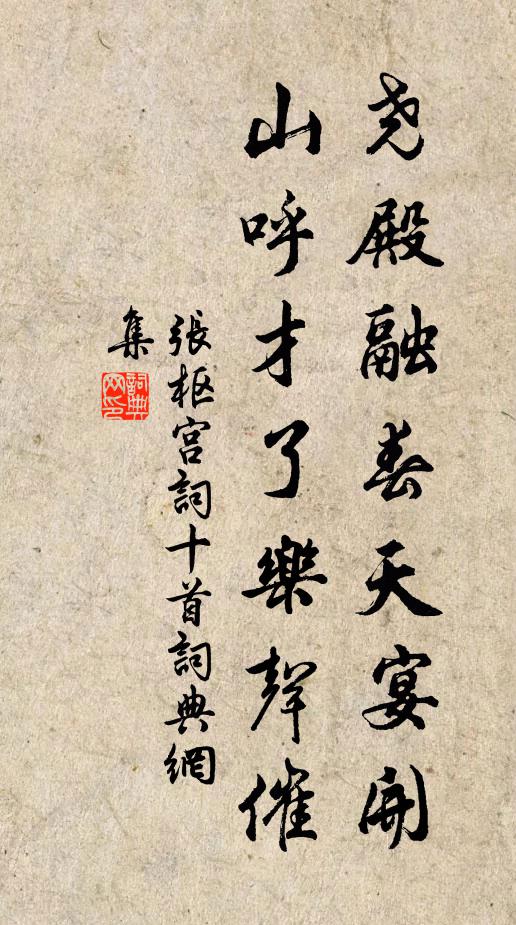 尧殿融春天宴開
山呼才了樂聲催
張枢宫詞十首詞典網
集
詞典
网印